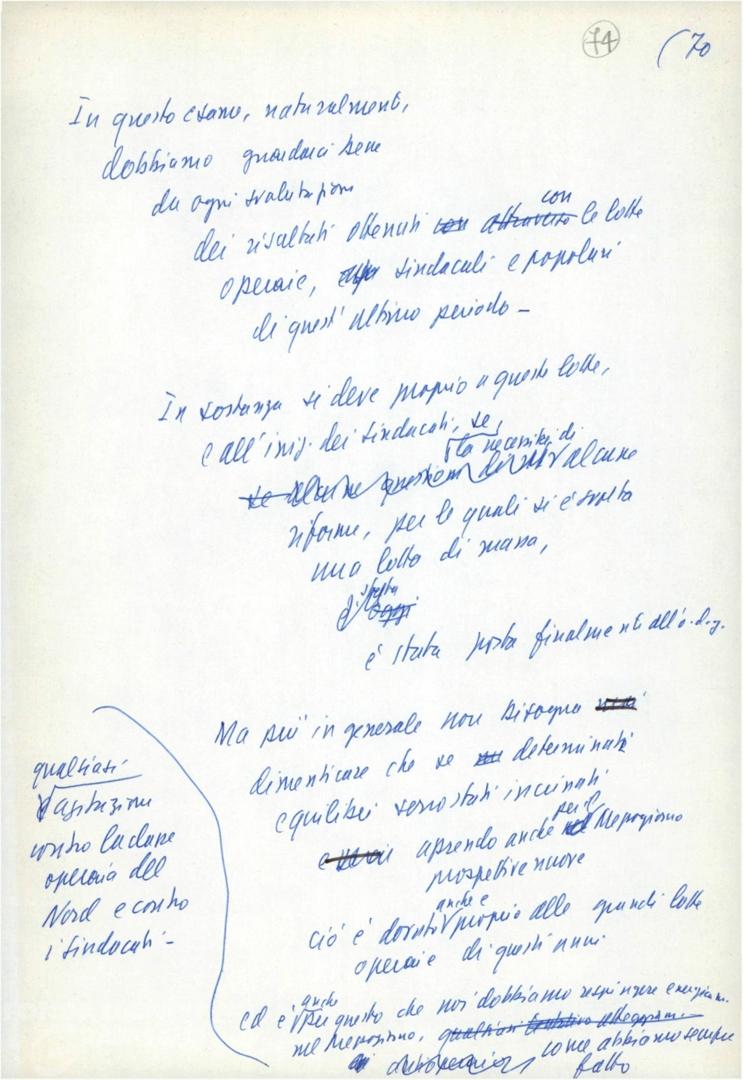 74
(70
In questo esame, naturalmente,
dobbiamo guardarci bene
da ogni svalutazione
dei risultati ottenuti con attraverso con le lotte
operaie, sindacali e popolari
di quest'ultimo periodo -
In sostanza si deve proprio a queste lotte,
e all'iniz. dei sindacati, se,
la necessità di
se alcune questioni di alcune
riforme, per le quali si è svolta
una lotta di massa,
è stata
oggi
è stata posta finalmente all'o.d.g.
Ma più in generale non bisogna
dimenticare che se determinati
equilibri sono stati incrinati
aprendo anche per il Mezzogiorno
prospettive nuove
ciò è dovuto anche e proprio alle grandi lotte
operaie di questi anni
ed è anche per questo che noi dobbiamo respingere energicam.
nel Mezzogiorno, qualsiasi tentativo atteggiam.
come abbiamo sempre
fatto
qualsiasi
agitazione
contro la classe
operaia del
Nord e contro
i sindacati -